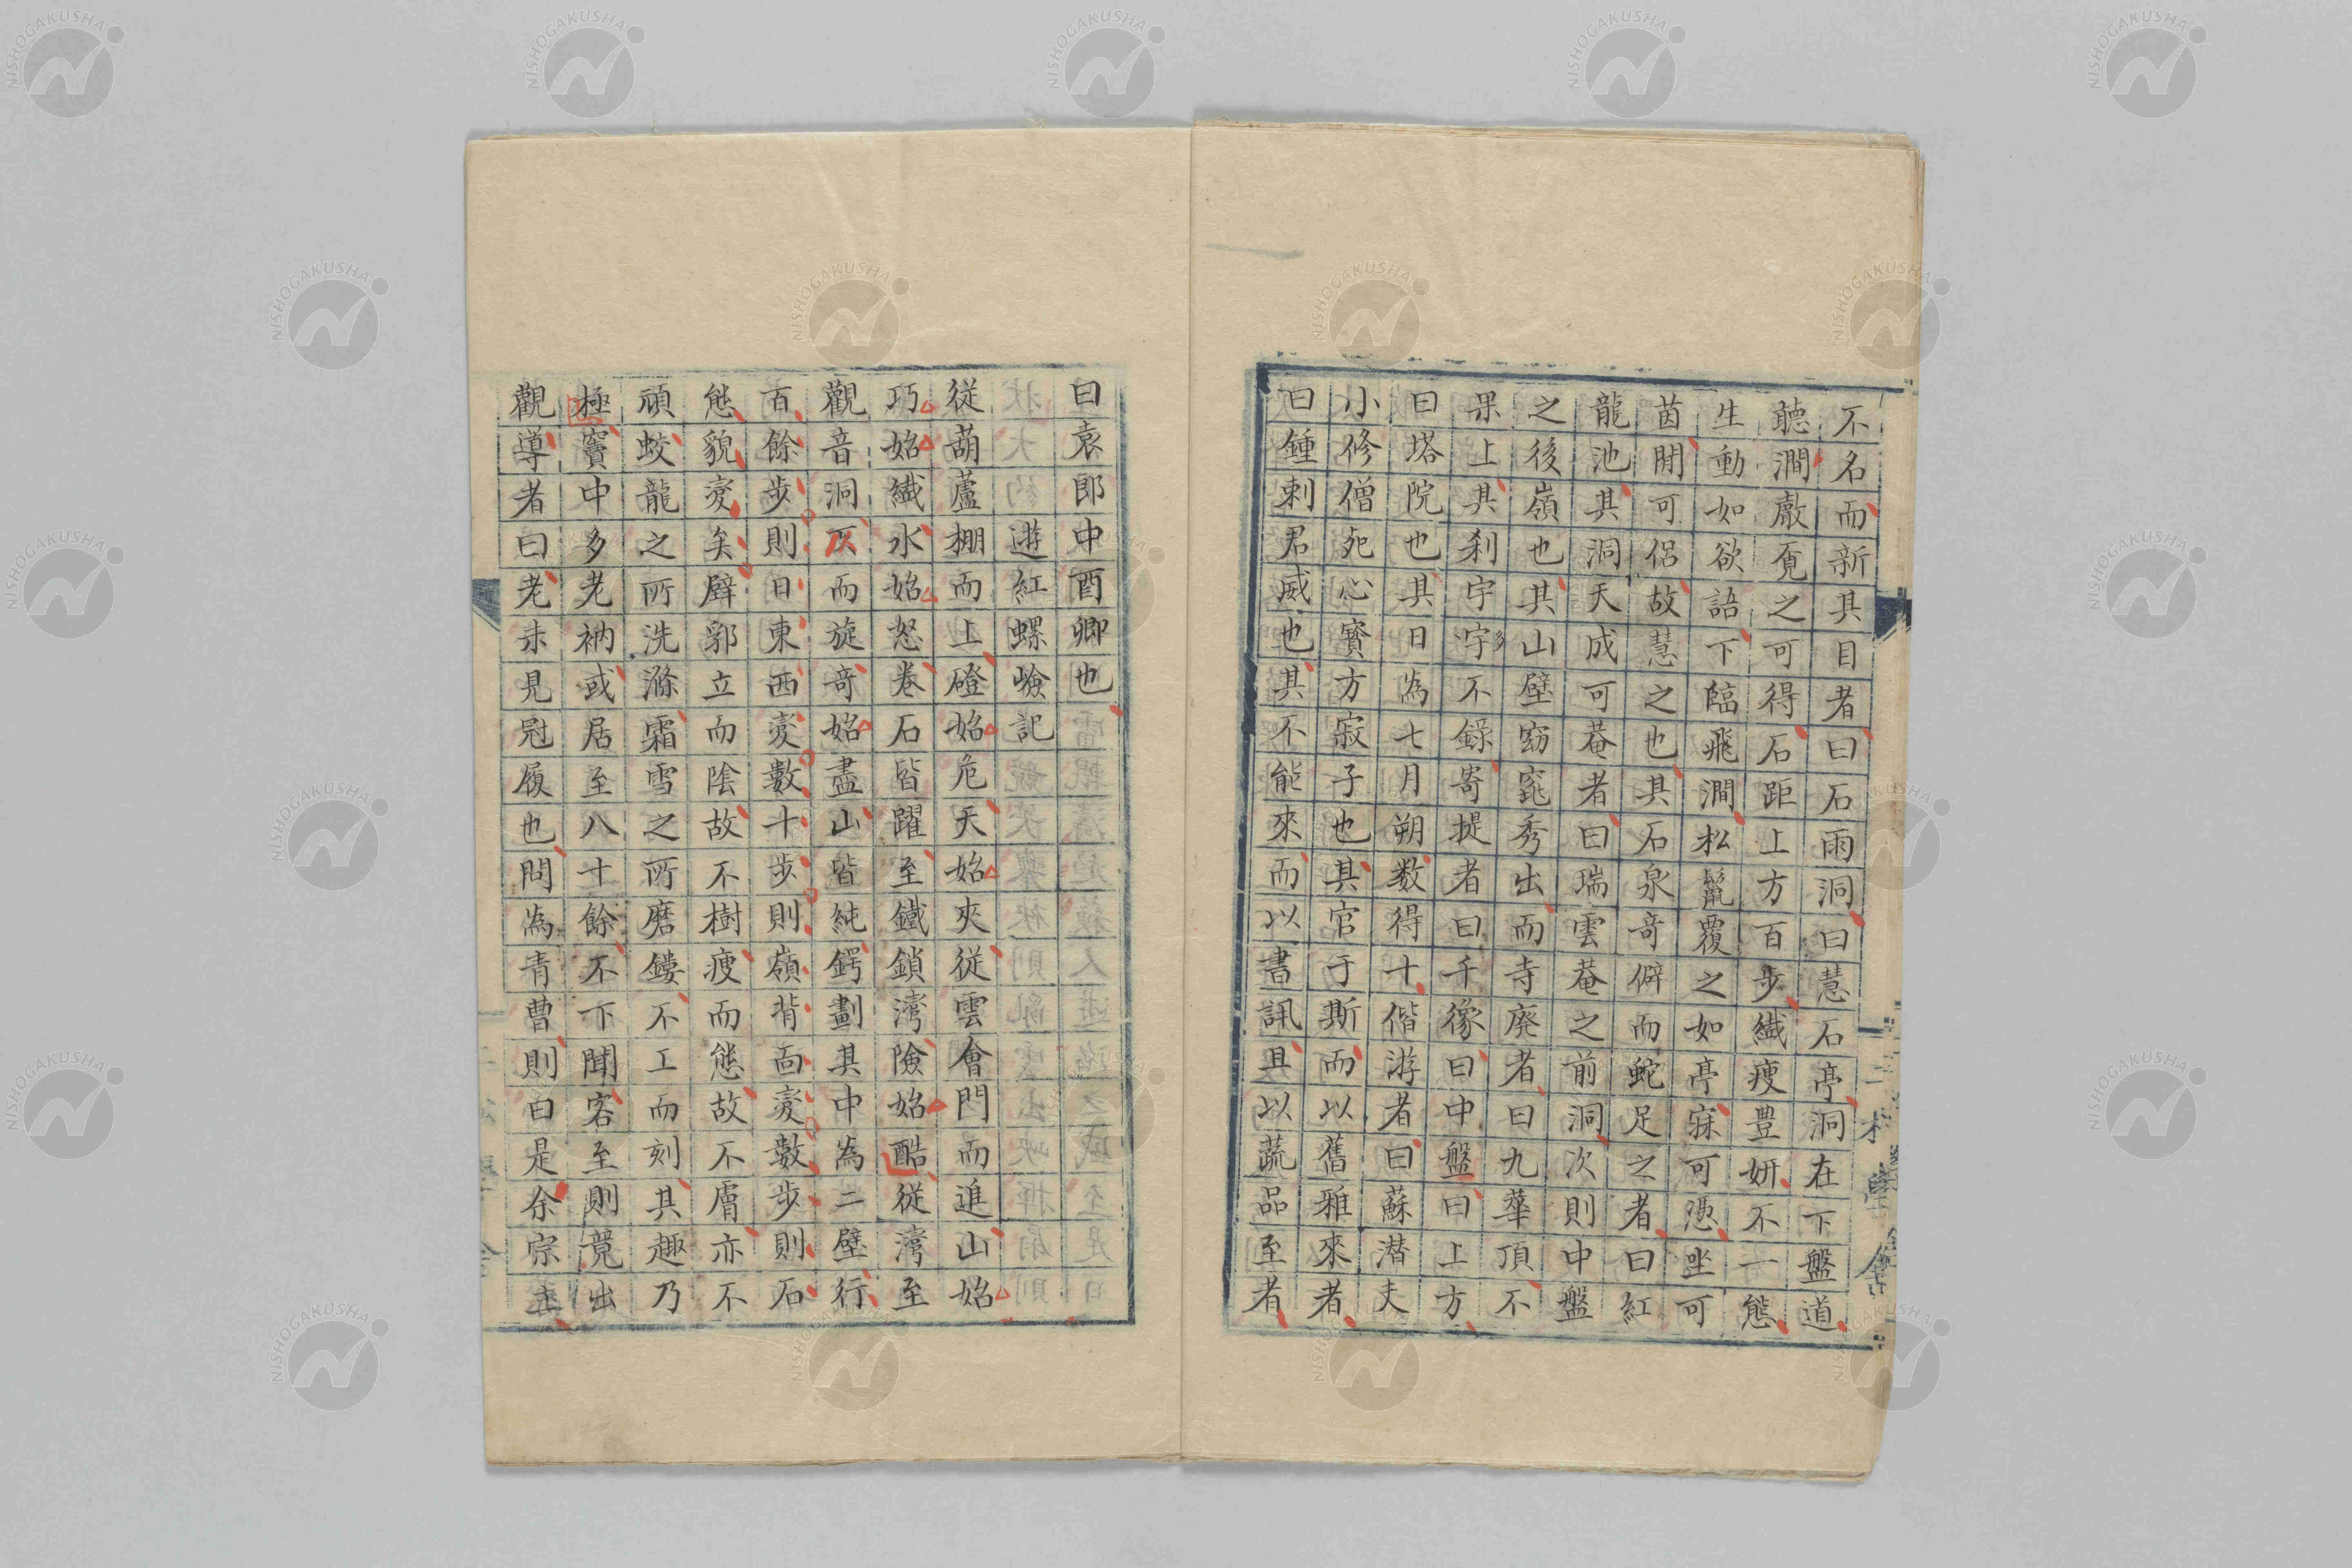 不名而新其目者曰石雨洞曰慧石亭洞在下盤道
聽澗厳覔之可得石距上方百步纎瘦豊妍不一態
生動如欲語下臨飛澗松鬣覆之如亭寐可憑坐可
茵閒可侶故慧之也其石泉竒僻而蛇足之者曰紅
龍池其洞天成可菴者曰瑞雲菴之前洞次則中盤
之後嶺也其山壁窈窕秀出而寺廃者曰九華頂不
果上其刹宇字多不錄寄提者曰千像曰中盤曰上方
曰塔院也其日為七月朔数得十偕游者曰蘇潜夫
小修僧死心寳方寂子也其官于斯而以舊雅來者
曰鍾刺君威也其不能來而以書訊且以蔬品至者
曰袁郎中酉卿也
遊紅螺嶮記
從葫蘆棚而上磴始危天始夾從雲會門而進山始
巧始纎水始怒卷石皆躍至鐵鎖灣險始酷從灣至
觀音洞仄而旋竒始盡山皆純鍔劃其中為二壁行
百餘步則日東西变數十步則嶺背面变數步則石
態貌变矣辟郭立而陰故不樹瘦而態故不膚亦不
頑蛟龍之所洗滌霜雪之所磨鏤不工而刻其趣乃
極竇中多老衲或居至八十餘不下聞客至則竟出
觀導者曰老未見冠履也問為青曹則曰是余宗主